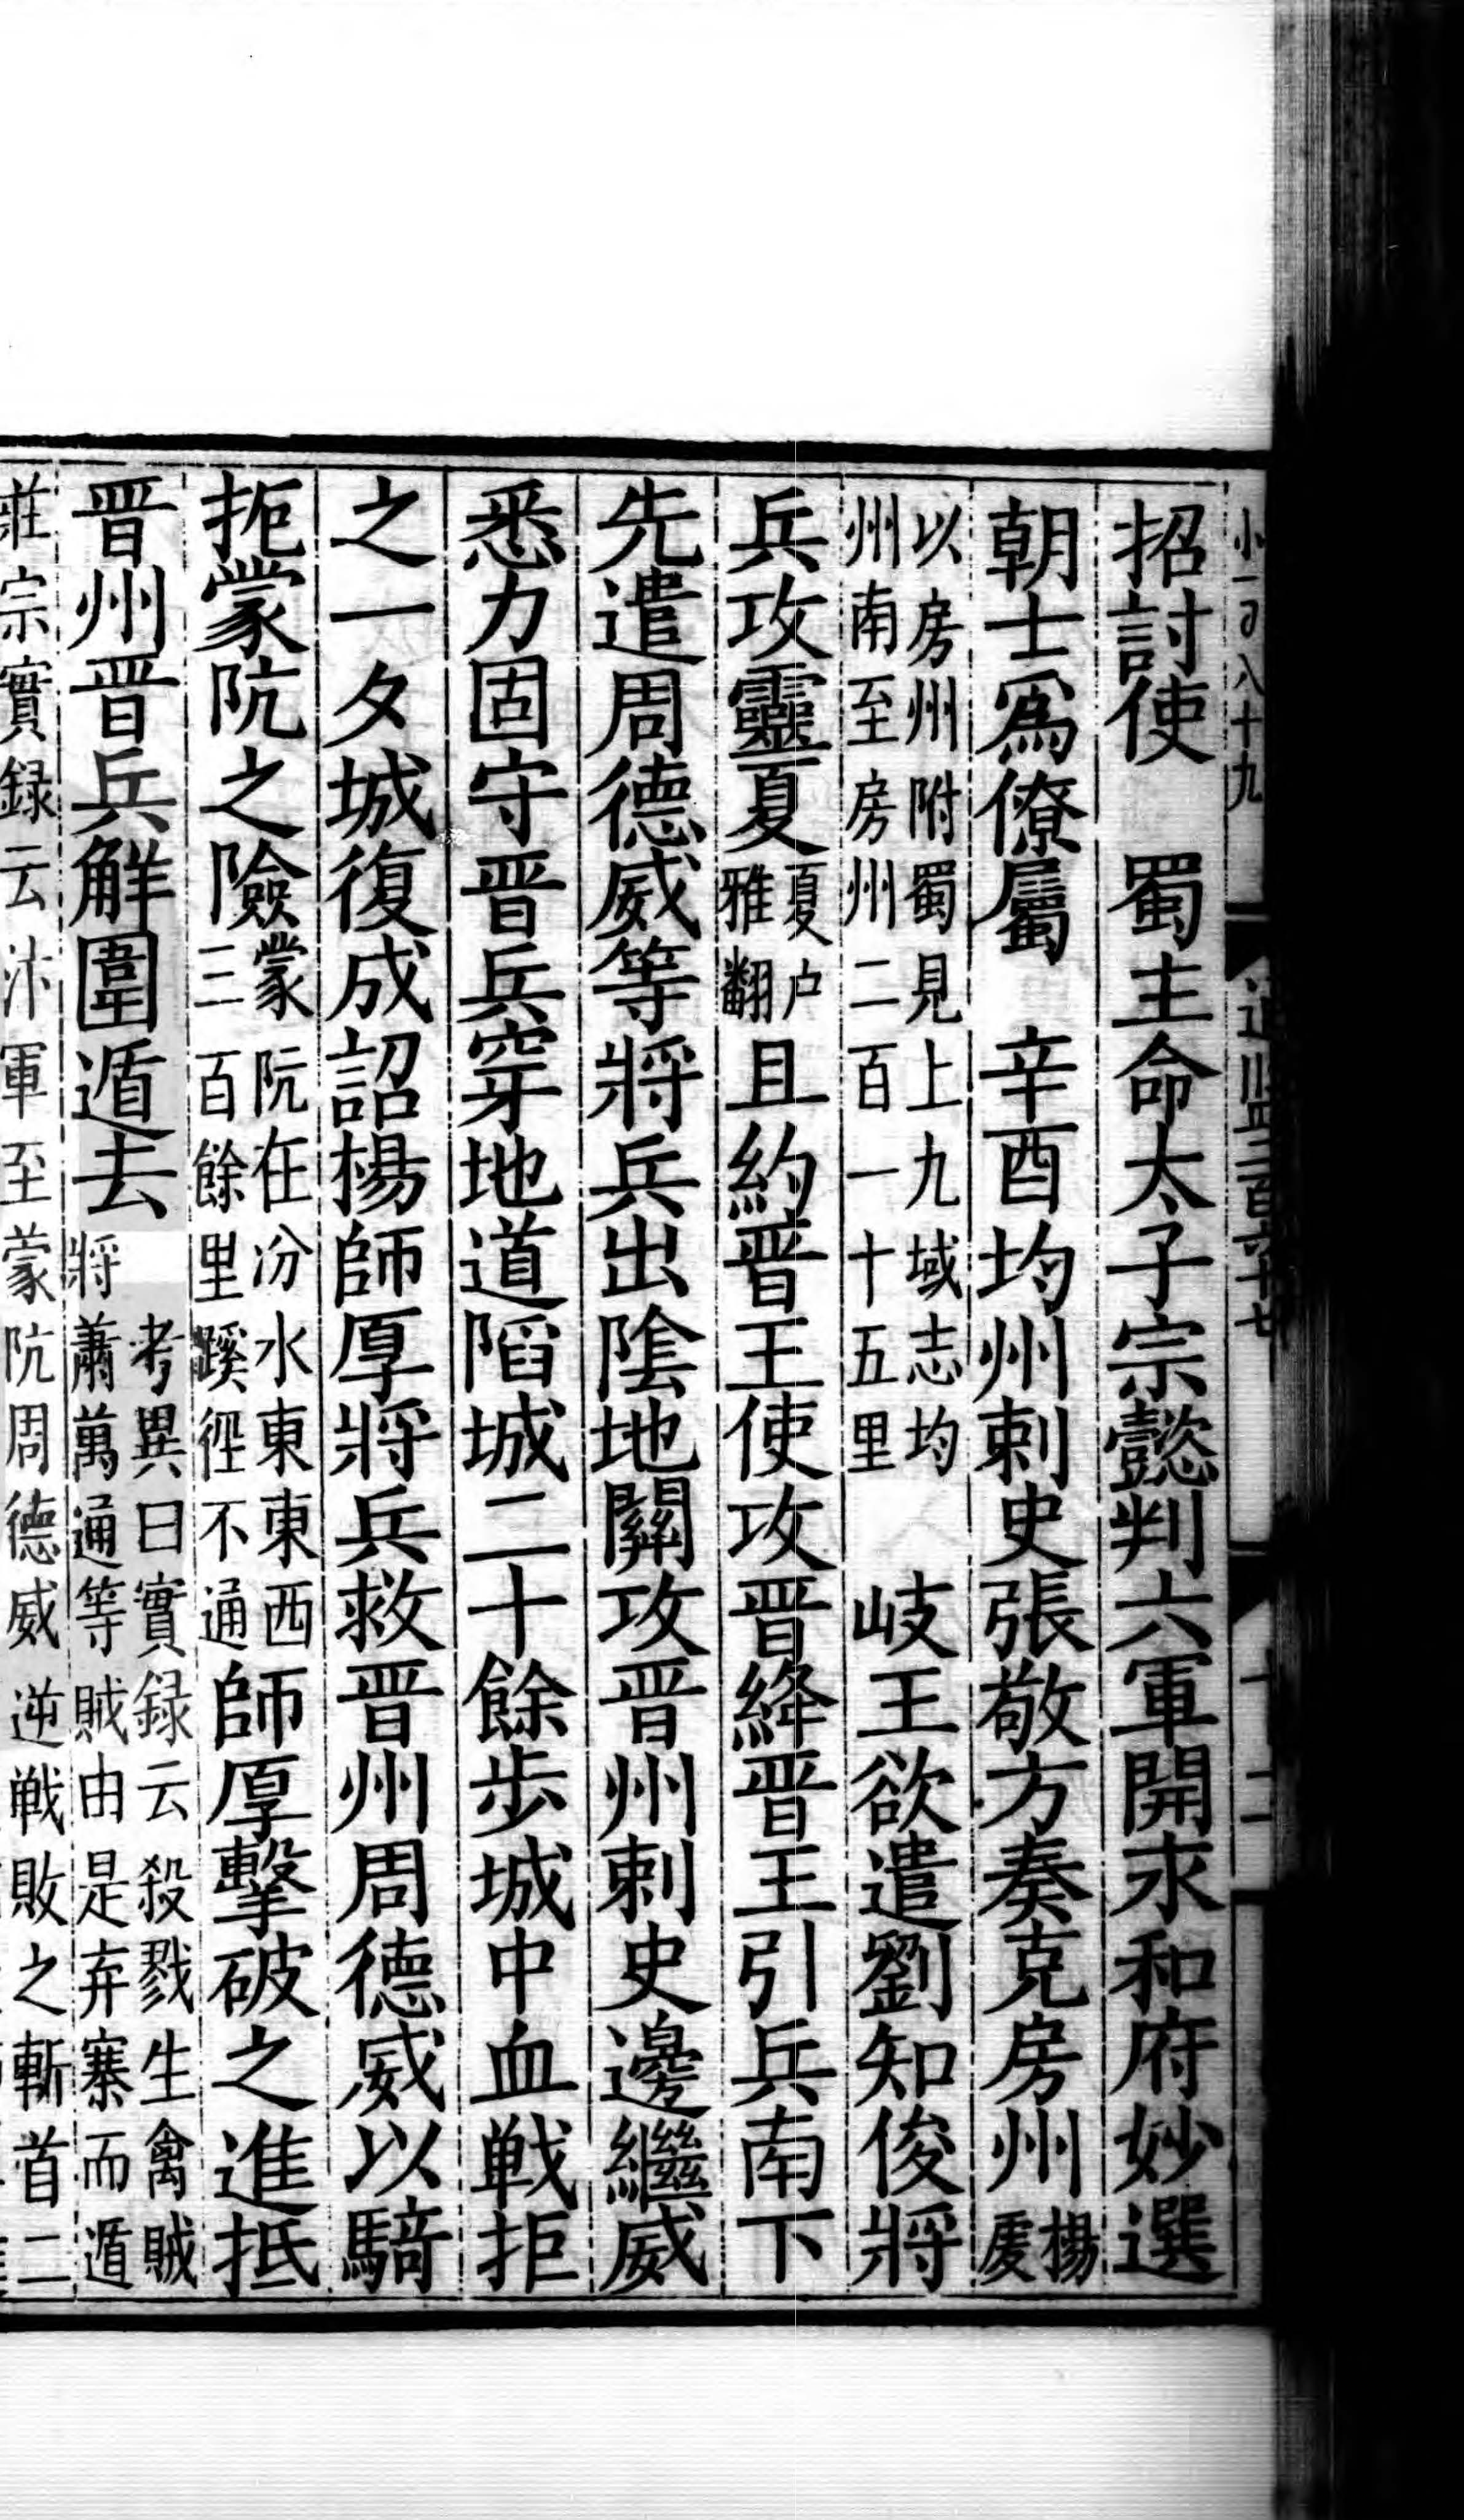 小一百八十九 通鑑二百六十七 十二
招討使 蜀主命太子宗懿判六軍開永和府妙選
朝士爲僚屬 辛酉均州刺史張敬方奏克房州楊虔
以房州附蜀見上九域志均
州南至房州二百一十五里 岐王欲遣劉知俊將
兵攻靈夏夏户雅翻且約晋王使攻晋絳晋王引兵南下
先遣周德威等將兵出隂地關攻晋州刺史邊繼威
悉力固守晋兵穿地道陷城二十餘歩城中血戰拒
之一夕城復成詔楊師厚將兵救晋州周德威以騎
扼蒙阬之險蒙阬在汾水東東西
三百餘里蹊徑不通師厚擊破之進抵
晋州晋兵解圍遁去考異曰實録云殺戮生禽賊
將蕭萬通等賊由是弃寨而遁
莊宗實録云汴軍至蒙阬周德威逆戰敗之斬首二